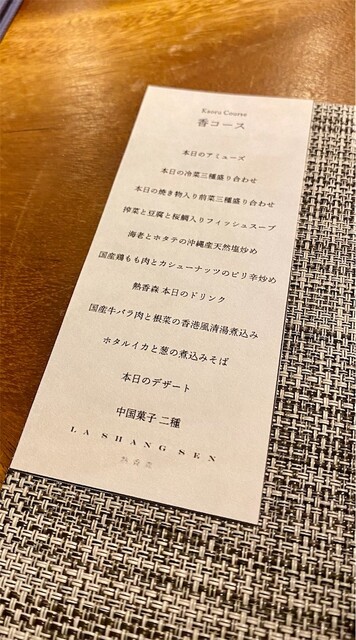 Kaoru Course
香コース
本日のアミューズ
本日の冷菜三種盛り合わせ
本日の焼き物入り前菜三種盛り合わせ
搾菜と豆腐と桜鯛入りフィッシュスープ
海老とホタテの沖縄産天然塩炒め
国産鶏もも肉とカシューナッツのピリ辛炒め
熱香森 本日のドリンク
国産牛バラ肉と根菜の香港風清湯煮込み
ホタルイカと葱の煮込みそば
本日のデザート
中国菓子二種
LA SHANG SEN
熱香森